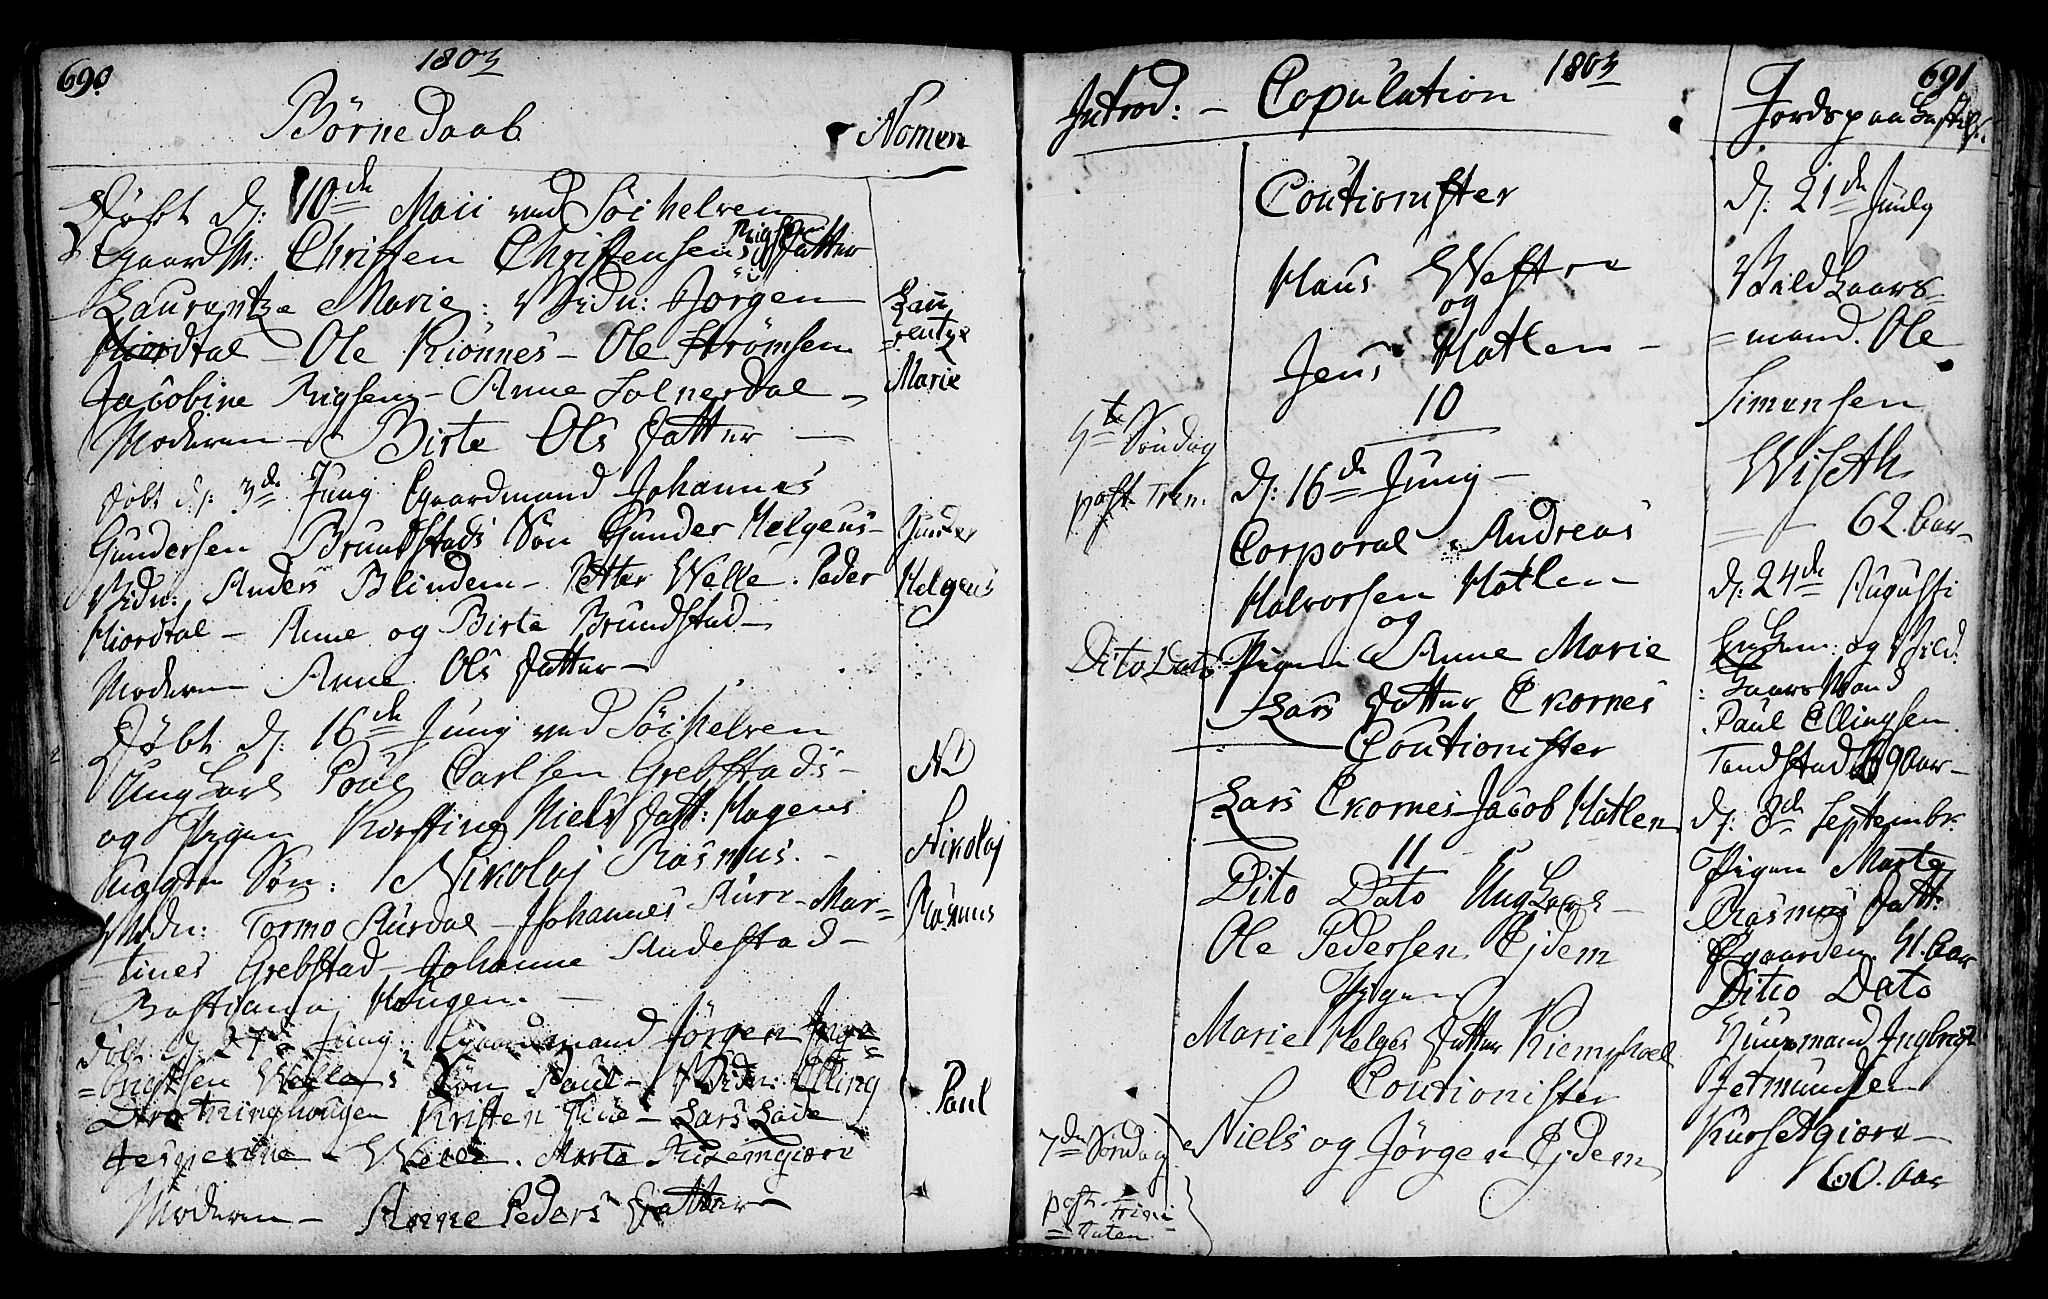 690.
1803
Børne Daab
Nomen
Døbt d: 10de Maii ved Søchelven
Gaardm: Christen Christensens Datter
Laurentze Marie: Vidn: Jørgen
Hiordtal – Ole Kiönnes – Ole Strömsen
Jacobine – Anne Solnerdal –
Moderen – Birte Ols Datter –
Lau
=rentze
Marie
Døbt d: 3de Juny Gaardmand Johannes
Gundersen Brundstads Søn Gunder Helgeus –
Vidn: Anders Blindem – Petter Welle. Peder
Hiordtal – Anne og Birte Brundstad –
Moderen Anne Ols Datter –
Gunder
Helgeus
Døbt d: 16de Juny ved Söchelven
Ung Karl Poul Carlsen Grebstads –
og Pigen Kirstine Niels Datt: Hagens
uægte Søn: Nikolaj Rasmus. –
Vidn: Tormo Aurdal – Johannes Aure – Mar=
=tines Grebstad – Johanne Andestad –
Bastiana Haugen. –
No 1
Nikolaj
Rasmus
Døbt d: 27de Juny Gaardmand Jørgen Inge=
=brigtsen Welles Søn Paul – Vidn: Elling
Kristen Tue – Lars Lade
Jesperine – Welle. Marte
Moderen – Anne Peders Datter –
Paul
1803
691
Introd: – Copulation
Jordspaakastelse.
Coutionister
Hans Westre
og
Jens Hatlen –
10
5te Søndag
post Trin.
d: 16de Juny –
Corporal Andreas
Halvorsen Hatlen
og
Dito Dato Pigen Anne Marie
Lars Datter Ekornes
Coutionister
Lars Ekornes – Jacob Hatlen
11
Dito Dato Ung Karl –
Ole Pedersen Ejdem
Pigen
Marie Helges Datter
Coutionister
Niels og Jørgen Ejdem
7de Søndag
post. Trini
=taten.
d: 21de July
Vild Kaars=
=mand. Ole
Simensen
Wiseth
– – 62 Aar –
d: 24de Augusti
Enkem: og Vild:
Kaars Mand
Paul Ellingsen
Tandstad 69 Aar –
d: 8de Septembr:
Pigen Marte
Rasmus Datt:
Øgaarden. 51. Aar
Ditto Dato
Huusmand Ingbrigt
Jetmundsen
Kursetgiære –
60. Aar